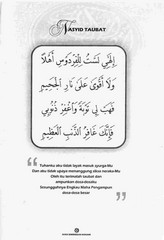 NASYID TAUBAT
إِلٰهِي لَسْتُ لِلْفِرْدَوْسِ أَهْلًا
وَلَا أَقْوَى عَلَى نَارِ الْجَحِيمِ
فَهَبْ لِي تَوْبَةً وَاغْفِرْ ذُنُوبِي
فَإِنَّكَ غَافِرُ الذَّنْبِ الْعَظِيمِ
Tuhanku aku tidak layak masuk syurga-Mu
Dan tidak aku upaya menanggung siksa neraka-Mu
Oleh itu terimalah taubat dan
ampunkan dosa-dosaku
Sesungguhnya Engkau Maha Pengampun
dosa-dosa besar